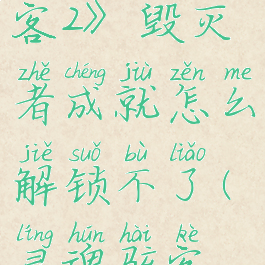 客2》 毁灭
zhě chéng jiù zěn me
者成就怎么
jiě suǒ bù liǎo
解锁不了(
líng hún hài kè
灵魂骇客